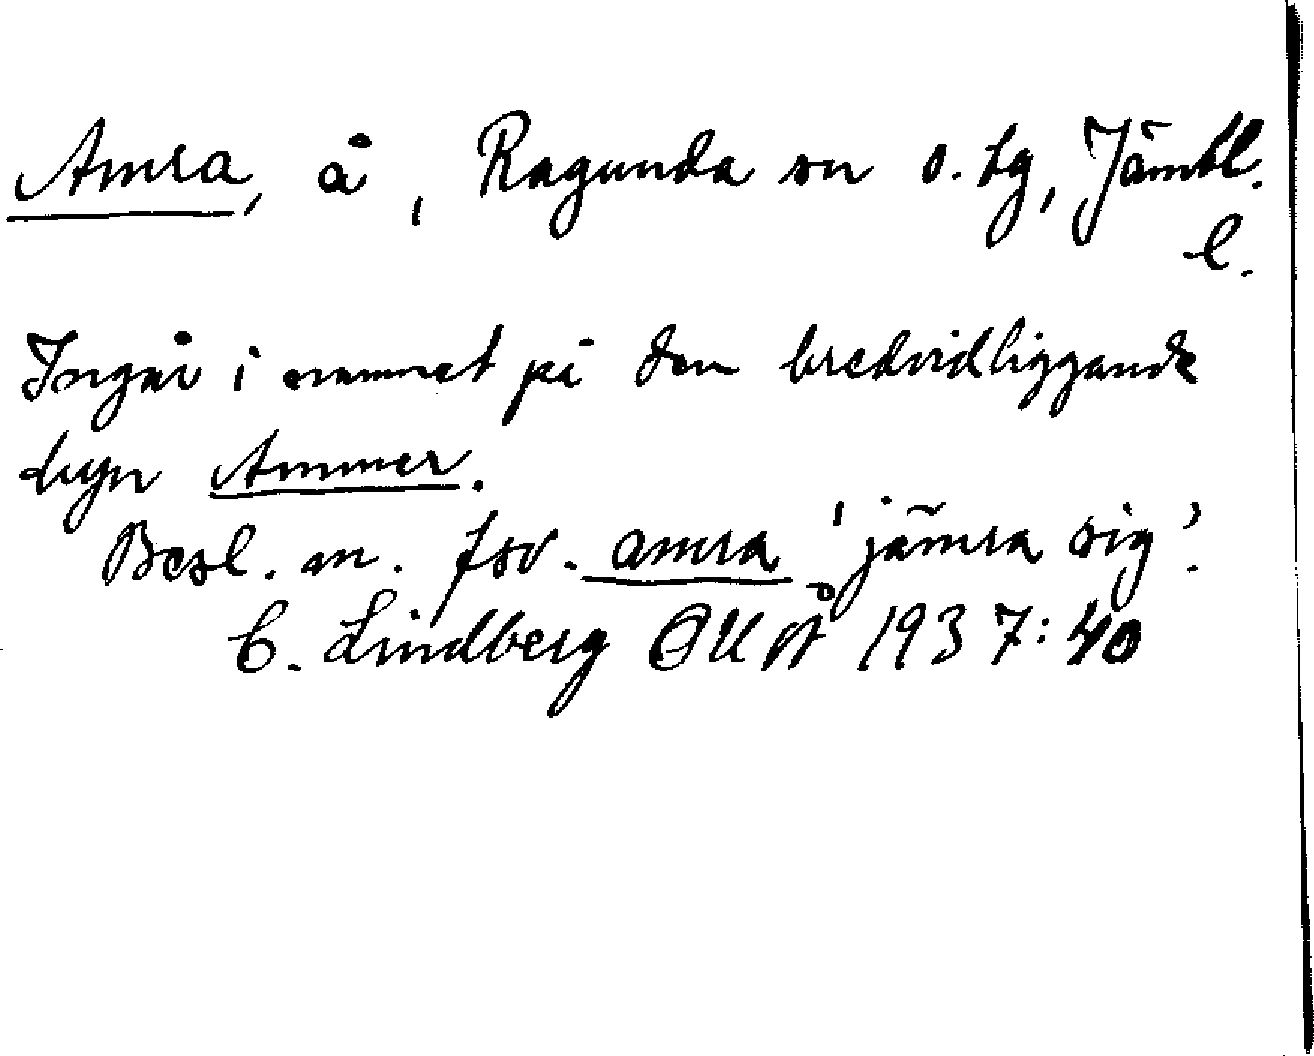 Amra, å, Ragunda sn o. tg, Jämtl.
l.
Ingår i namnet på den bredvidliggande
byn Ammer.
Besl. m. fsv. amra 'jämra sig'.
C. Lindberg OUÅ 1937:40